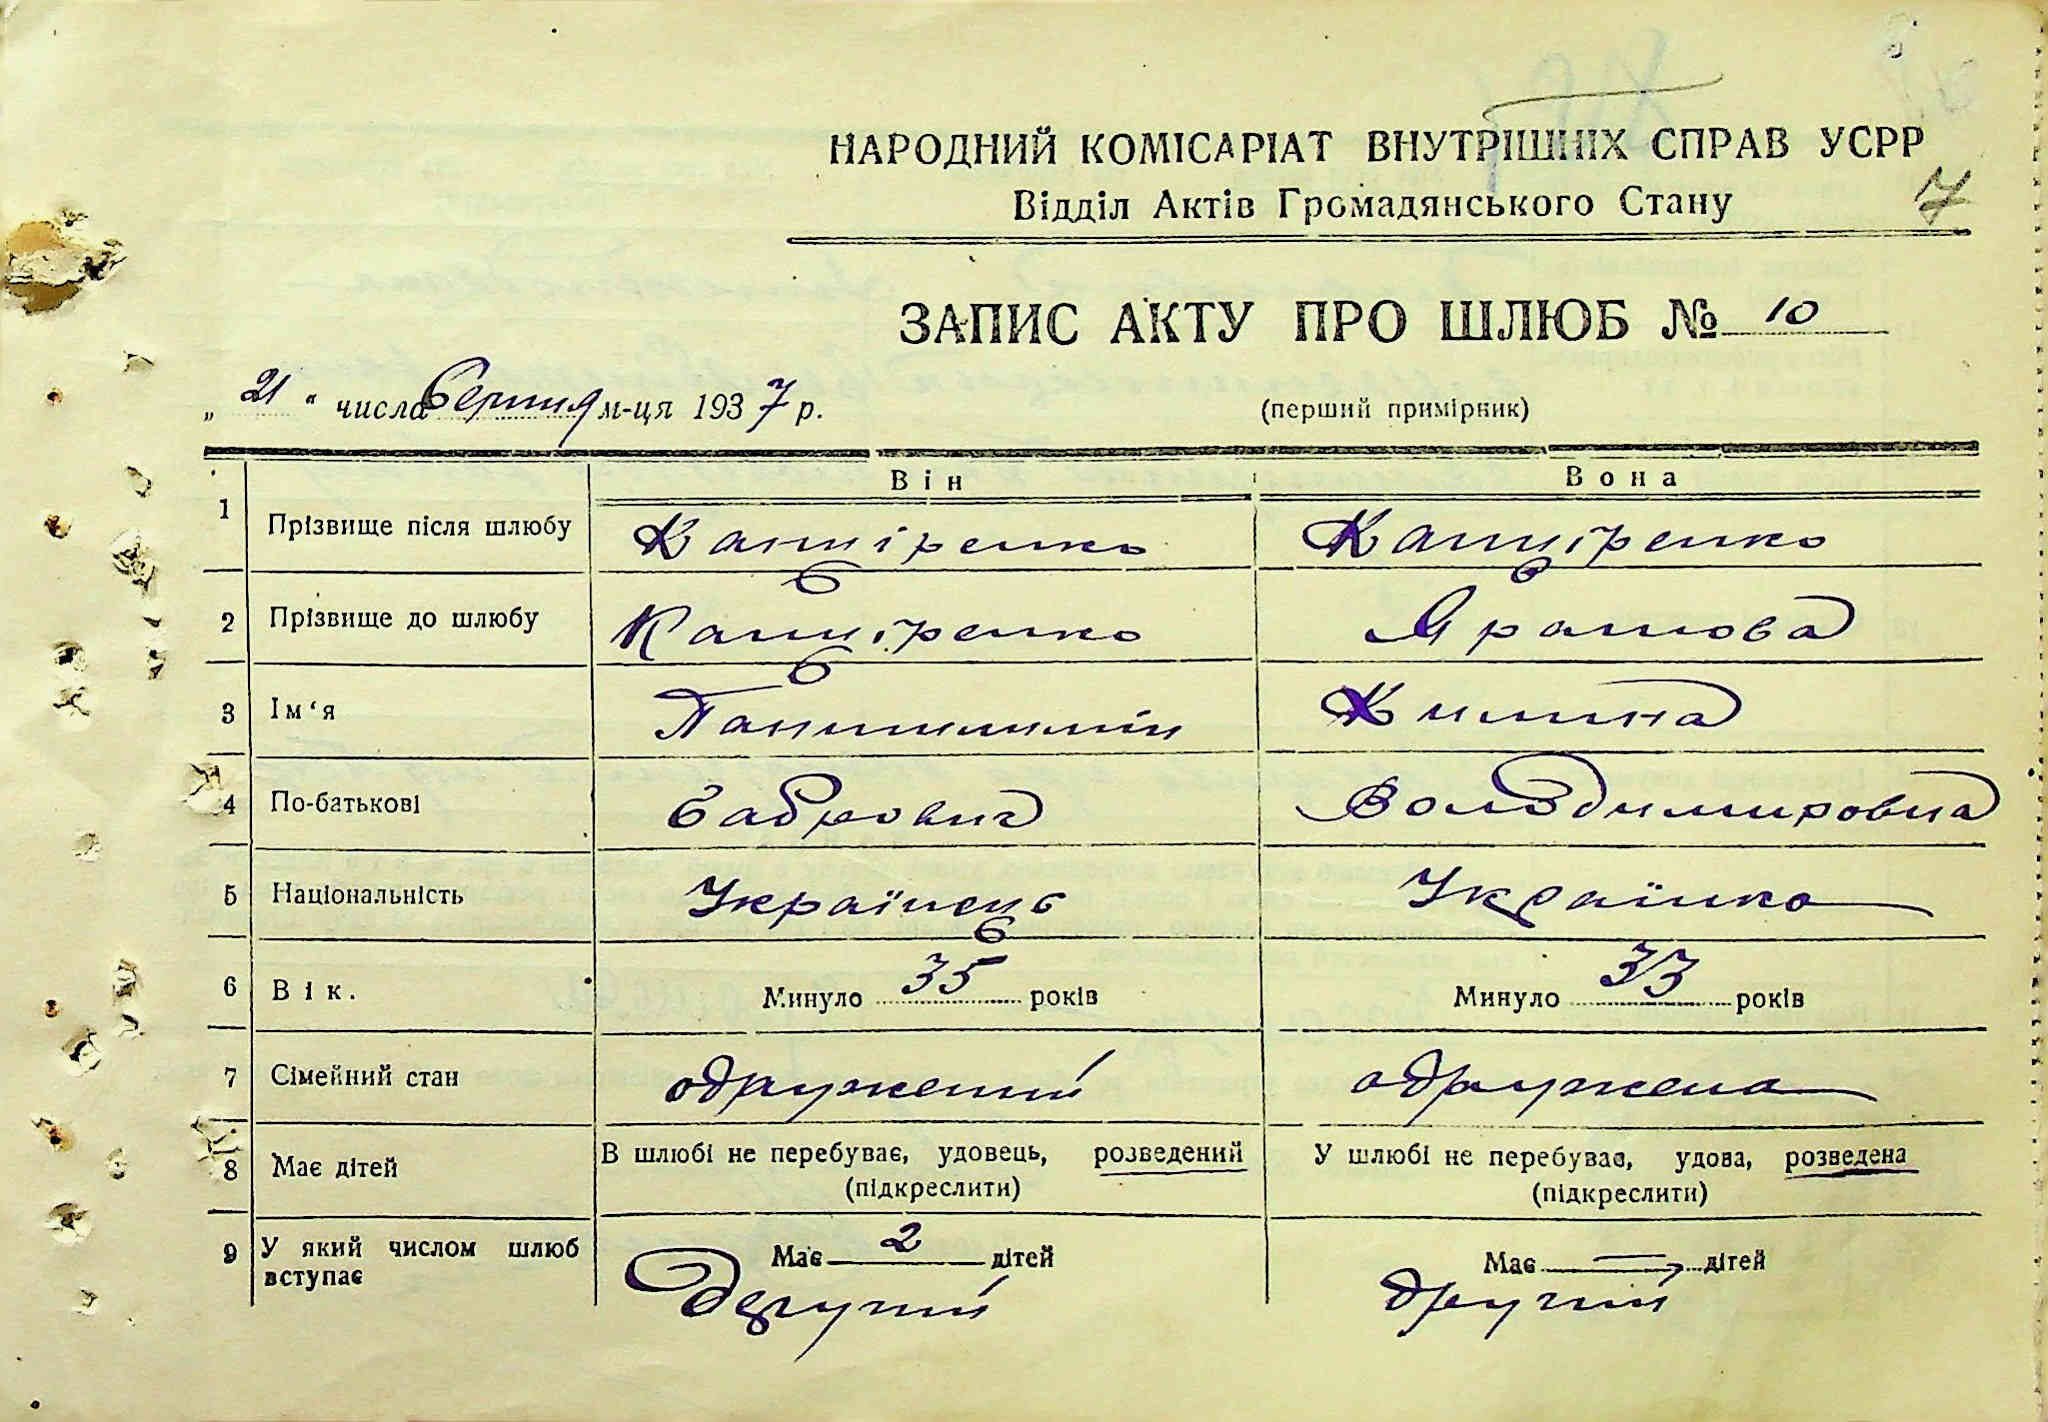 НАРОДНИЙ КОМІСАРІАТ ВНУТРІШНІХ СПРАВ УСРР
Відділ Актів Громадянського Стану
7
ЗАПИС АКТУ ПРО ШЛЮБ № 10
„ 21 “ числа Серпня м-ця 1937 р.
(перший примірник)
Він Вона
1 Прізвище після шлюбу Канціренко Канціренко
2 Прізвище до шлюбу Канціренко
3 Ім‘я Килина
4 По-батькові Володимировна
5 Національність Українець Українка
6 Вік. Минуло 35 років Минуло 33 років
7 Сімейний стан одружений одружена
8 Має дітей В шлюбі не перебуває, удовець, розведений У шлюбі не перебуває, удова, розведена
(підкреслити) (підкреслити)
9 У який числом шлюб вступає Має 2 дітей Має — дітей
другий другий